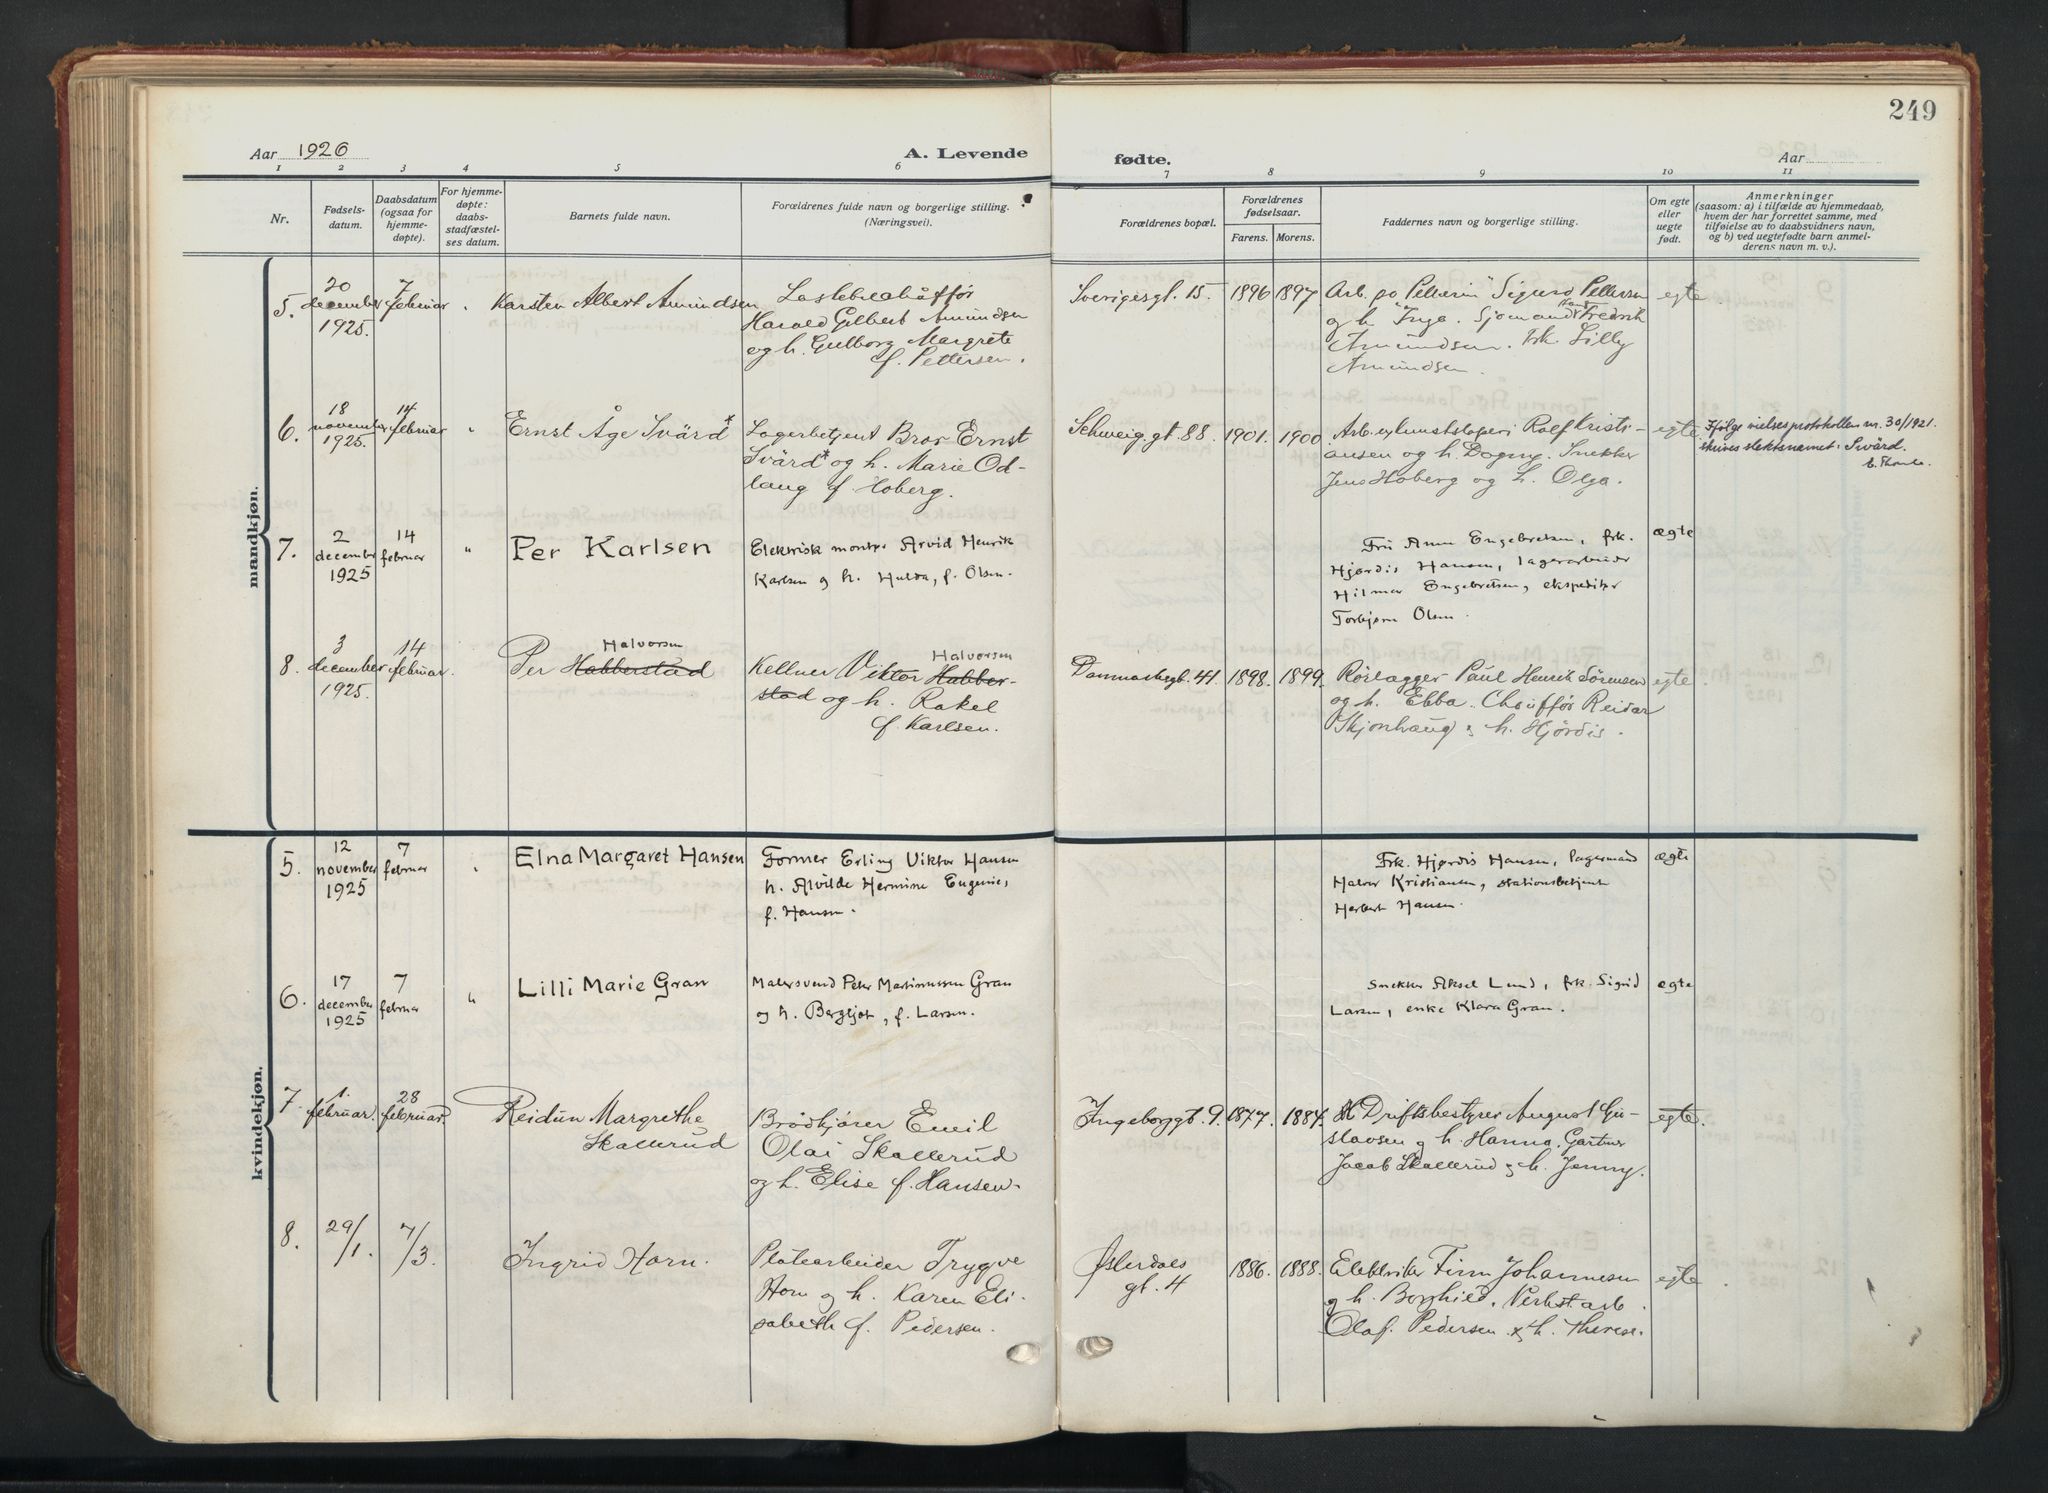 249
Aar 1926
A. Levende
fødte.
Aar
1 2 3 4 5 6 7 8 9 10 11
Nr.
Fødsels-
datum.
Daabsdatum
(ogsaa for
hjemme-
døpte).
For hjemme-
døpte:
daabs-
stadfæstel-
ses datum.
Barnets fulde navn.
Forældrenes fulde navn og borgerlige stilling.
(Næringsvei).
Forældrenes bopæl.
Forældrenes
fødselsaar.
Farens. Morens.
Faddernes navn og borgerlige stilling.
Om egte
eller
uegte
født.
Anmerkninger
(saasom: a) i tilfælde av hjemmedaab,
hvem der har forrettet samme, med
tilføielse av to daabsvidners navn,
og b) ved uegtefødte barn anmel-
derens navn m. v.).
mandkjøn.
5.
20
december
1925.
7
februar
"
Karsten Albert Amundsen
Harald Gilbert Amundsen
og h. Gulborg Margrete
f. Pettersen.
Sverigesgt. 15.
1896
1897
Sigurd Pettersen
og h Inga. Sjømand Fredrik
Amundsen. Frk. Lilly
Amundsen.
egte.
6.
18
november
1925.
14
februar
"
Ernst Åge Svärd*
Lagerbetjent Bror Ernst
Svärd* og h. Marie Od-
laug f. Hoberg.
Schweig.gt 88.
1901.
1900
Rolf Kristi-
ansen og h. Dagny. Snekker
Jens Hoberg og h. Olga.
egte.
Ifølge vielsesprotokollen nr. 30/1921.
skrives slektsnamnet: Svärd.
7.
2
december
1925
14
februar
"
Per Karlsen
Elektrisk montør Arvid Henrik
Karlsen og h. Hulda, f. Olsen.
Fru Anna Engebretsen, frk.
Hjørdis Hansen, lagerarbeider
Hilmar Engebretsen, ekspeditør
Torbjørn Olsen.
ægte
8.
3
december
1925.
14
februar.
Halvorsen
Per Habberstad
Halvorsen
Kellner Viktor Habber-
stad og h. Rakel
f. Karlsen.
Danmarksgt. 41.
1898.
1899.
Rørlægger Paul Henrik Sörensen
og h. Ebba. Chauffør Reidar
Skjønhaug og h. Hjørdis.
egte.
kvindekjøn.
5.
12
november
1925
7
februar
"
Elna Margaret Hansen
Former Erling Viktor Hansen
h. Alvilde Hermine Eugenie,
f. Hansen.
Frk. Hjørdis Hansen, lagermand
Halvor Kristiansen, stationsbetjent
Herbert Hansen.
ægte
6.
17
december
1925
7
februar
"
Lilli Marie Gran
Malersvend Peter Martinussen Gran
og h. Bergljot, f. Larsen.
Snekker Aksel Lund, frk. Sigrid
Larsen, enke Klara Gran.
ægte
7.
1
februar.
28
februar.
Reidun Margrethe
Skallerud
Brødkjører Emil
Olai Skallerud
og h. Elise f. Hansen.
Ingeborggt. 9.
1877.
1884.
Driftsbestyrer August Gu-
stavsen og h. Hanna. Gartner
Jacob Skallerud og h. Jenny.
egte.
8.
29/1.
7/3.
Ingrid Horn.
Platearbeider Trygve
Horn og h. Karen Eli-
sabeth f. Pedersen.
Østerdals
gt. 4
1886.
1888.
Elektriker Finn Johannesen
og h. Borghild. Verkst. arb.
Olaf. Pedersen og h. Therese.
egte.